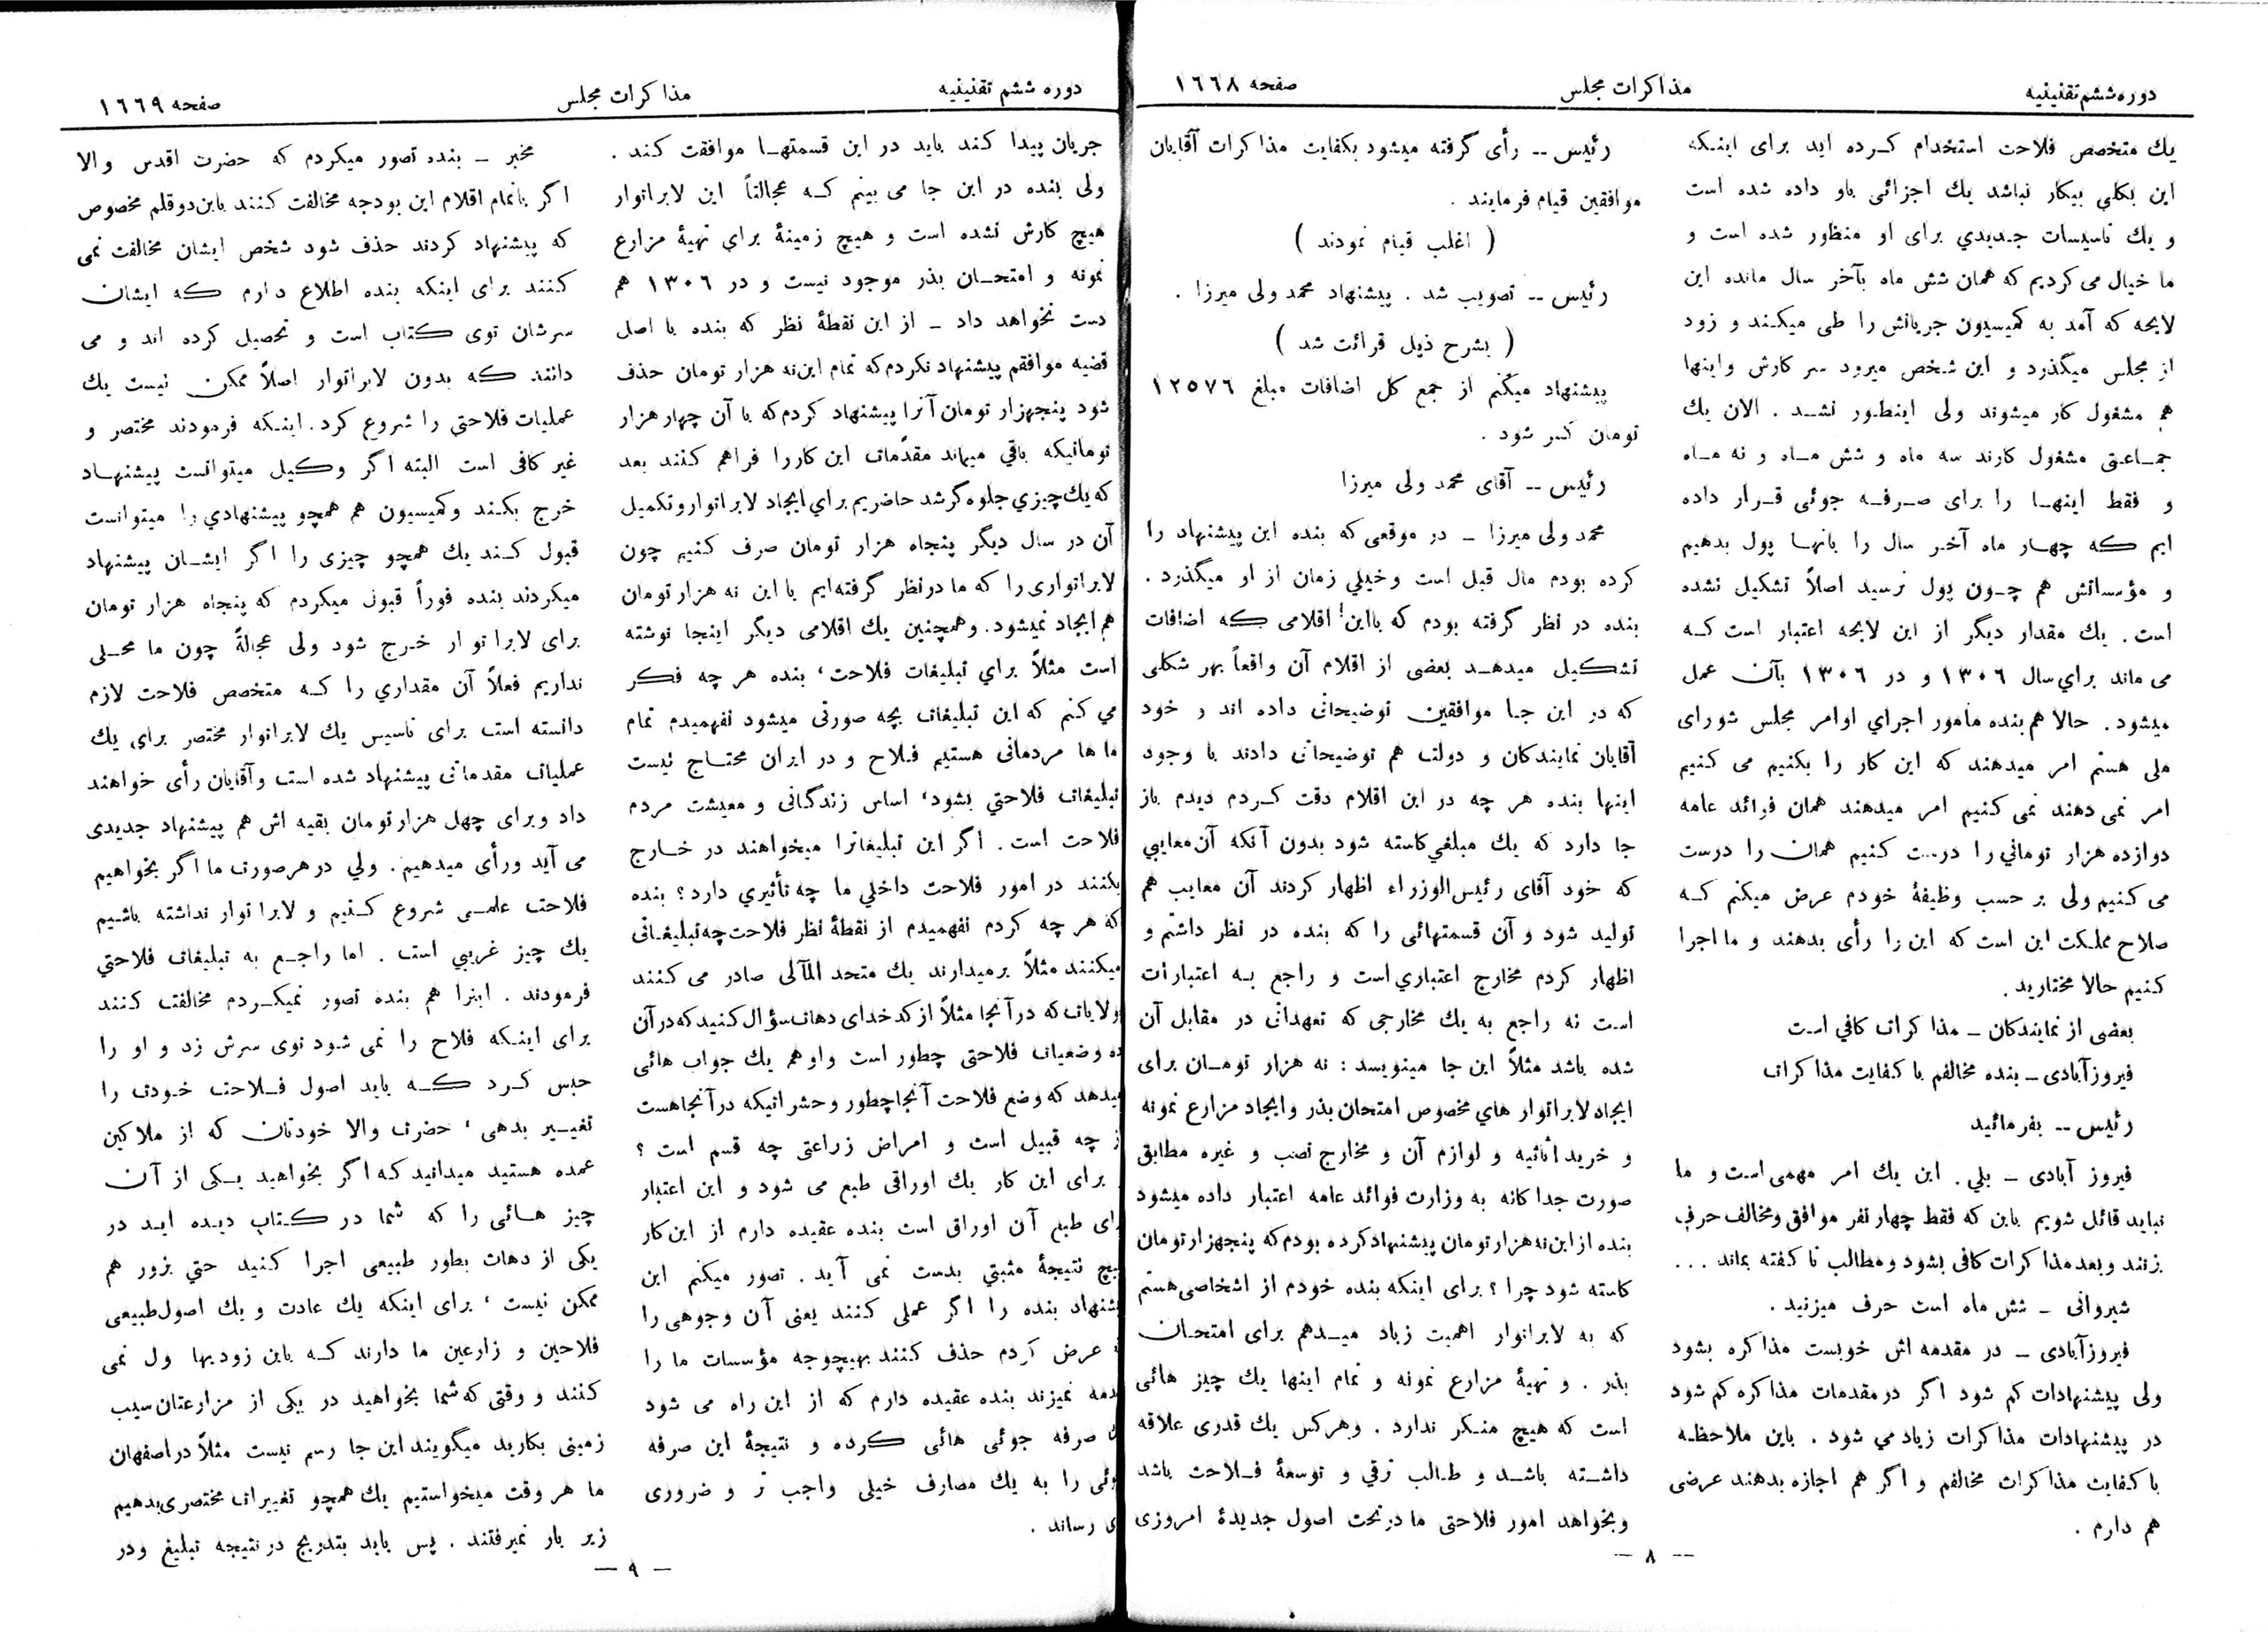 دوره ششم تقنینیه
مذاکرات مجلس
صفحه ۱٦٦۸
یك متخصص فلاحت استخدام کرده اید برای اینکه
این بکلی بیکار نباشد یك اجزائی باو داده شده است
و یك تاسیسات جدیدي برای او منظور شده است و
ما خیال می کردیم که همان شش ماه بآخر سال مانده این
لایحه که آمد به کمیسیون جریانش را طی میکند و زود
از مجلس میگذرد و این شخص میرود سر کارش واینها
هم مشغول کار میشوند ولی اینطور نشد . الان یك
جماعتی مشغول کارند سه ماه و شش ماه و نه ماه
و فقط اینها را برای صرفه جوئی قرار داده
ایم که چهار ماه آخر سال را بانها پول بدهیم
و مؤسساتش هم چون پول نرسید اصلاً تشکیل نشده
است . یك مقدار دیگر از این لایحه اعتبار است که
می ماند براي سال ۱۳۰٦ و در ۱۳۰٦ بآن عمل
میشود . حالا هم بنده مأمور اجراي اوامر مجلس شورای
ملی هستم امر میدهند که این کار را بکنیم می کنیم
امر نمی دهند نمی کنیم امر میدهند همان فوائد عامه
دوازده هزار تومانی را درست کنیم همان را درست
می کنیم ولی بر حسب وظیفهٔ خودم عرض میکنم که
صلاح مملکت این است که این را رأی بدهند و ما اجرا
کنیم حالا مختارید .
بعضی از نمایندکان ـ مذاکرات کافي است
فیروزآبادی ـ بنده مخالفم با کفایت مذاکرات
رئیس -- بفرمائید
فیروز آبادی ـ بلي . این یك امر مهمی است و ما
نباید قائل شویم باین که فقط چهار نفر موافق ومخالف حرف
بزنند و بعد مذاکرات کافی بشود و مطالب نا گفته بماند ...
شیروانی ـ شش ماه است حرف میزنید .
فیروزآبادی ـ در مقدمه اش خوبست مذاکره بشود
ولی پیشنهادات کم شود اگر در مقدمات مذاکره کم شود
در پیشنهادات مذاکرات زیاد می شود . باین ملاحظه
با کفایت مذاکرات مخالفم و اگر هم اجازه بدهند عرضی
هم دارم .
رئیس -- رأی گرفته میشود بکفایت مذاکرات آقایان
موافقین قیام فرمایند .
( اغلب قیام نمودند )
رئیس -- تصویب شد . پیشنهاد محمد ولی میرزا .
( بشرح ذیل قرائت شد )
پیشنهاد میکنم از جمع کل اضافات مبلغ ۱۲۵۷٦
تومان کسر شود .
رئیس -- آقای محمد ولی میرزا
محمد ولی میرزا ـ در موقعی که بنده این پیشنهاد را
کرده بودم مال قبل است وخیلي زمان از او میگذرد .
بنده در نظر گرفته بودم که بااین اقلامی که اضافات
تشکیل میدهد بعضی از اقلام آن واقعاً بهر شکلی
که در این جا موافقین توضیحاتی داده اند و خود
آقایان نمایندکان و دولت هم توضیحاتی دادند با وجود
اینها بنده هر چه در این اقلام دقت کردم دیدم باز
جا دارد که یك مبلغي کاسته شود بدون آنکه آن معایبي
که خود آقای رئیس الوزراء اظهار کردند آن معایب هم
تولید شود و آن قسمتهائی را که بنده در نظر داشتم و
اظهار کردم مخارج اعتباري است و راجع به اعتبارات
است نه راجع به یك مخارجی که تعهداتی در مقابل آن
شده باشد مثلاً این جا مینویسد : نه هزار تومان برای
ایجاد لابراتوار هاي مخصوص امتحان بذر و ایجاد مزارع نمونه
و خرید اثاثیه و لوازم آن و مخارج نصب و غیره مطابق
صورت جداکانه به وزارت فوائد عامه اعتبار داده میشود
بنده از این نه هزار تومان پیشنهاد کرده بودم که پنجهزار تومان
کاسته شود چرا ؟ برای اینکه بنده خودم از اشخاصی هستم
که به لابراتوار اهمیت زیاد میدهم برای امتحان
بذر . و تهیهٔ مزارع نمونه و تمام اینها یك چیز هائی
است که هیچ منکر ندارد . وهرکس یك قدری علاقه
داشته باشد و طالب ترقي و توسعهٔ فلاحت باشد
وبخواهد امور فلاحتی ما در تحت اصول جدیدهٔ امروزی
-- ۸ —
دوره ششم تقنینیه
مذاکرات مجلس
صفحه ۱٦٦۹
جریان پیدا کند باید در این قسمتها موافقت کند .
ولی بنده در این جا می بینم که عجالتاً این لابراتوار
هیچ کارش نشده است و هیچ زمینهٔ براي تهیهٔ مزارع
نمونه و امتحان بذر موجود نیست و در ۱۳۰٦ هم
دست نخواهد داد ـ از این نقطهٔ نظر که بنده با اصل
قضیه موافقم پیشنهاد نکردم که تمام این نه هزار تومان حذف
شود پنجهزار تومان آنرا پیشنهاد کردم که با آن چهار هزار
تومانیکه باقي میماند مقدّمات این کار را فراهم کنند بعد
که یك چیزي جلوه گر شد حاضریم براي ایجاد لابراتوار و تکمیل
آن در سال دیگر پنجاه هزار تومان صرف کنیم چون
لابراتواری را که ما در نظر گرفته ایم با این نه هزار تومان
هم ایجاد نمیشود . وهمچنین یك اقلامی دیگر اینجا نوشته
است مثلاً براي تبلیغات فلاحت ، بنده هر چه فکر
مي کنم که این تبلیغات بچه صورتی میشود نفهمیدم تمام
ما ها مردمانی هستیم فلاح و در ایران محتاج نیست
تبلیغات فلاحتي بشود ، اساس زندگانی و معیشت مردم
فلاحت است . اگر این تبلیغاترا میخواهند در خارج
بکنند در امور فلاحت داخلي ما چه تأثیري دارد ؟ بنده
که هر چه کردم نفهمیدم از نقطهٔ نظر فلاحت چه تبلیغاتی
میکنند مثلاً برمیدارند یك متحد المآلی صادر می کنند
ولایات که در آنجا مثلاً از کدخدای دهات سؤال کنید که در آن
وضعیات فلاحتی چطور است واوهم یك جواب هائی
میدهد که وضع فلاحت آنجا چطور و حشراتیکه در آنجا هست
از چه قبیل است و امراض زراعتی چه قسم است ؟
برای این کار یك اوراقی طبع می شود و این اعتبار
طبع آن اوراق است بنده عقیده دارم از این کار
هیچ نتیجهٔ مثبتي بدست نمی آید . تصور میکنم این
پیشنهاد بنده را اگر عملی کنند یعنی آن وجوهی را
عرض کردم حذف کنند بهیچوجه مؤسسات ما را
نمیزند بنده عقیده دارم که از این راه می شود
صرفه جوئی هائی کرده و نتیجهٔ این صرفه
را به یك مصارف خیلی واجب تر و ضروری
رساند .
مخبر ـ بنده تصور میکردم که حضرت اقدس والا
اگر باتمام اقلام این بودجه مخالفت کنند باین دو قلم مخصوص
که پیشنهاد کردند حذف شود شخص ایشان مخالفت نمی
کنند برای اینکه بنده اطلاع دارم که ایشان
سرشان توی کتاب است و تحصیل کرده اند و می
دانند که بدون لابراتوار اصلاً ممکن نیست یك
عملیات فلاحتي را شروع کرد . اینکه فرمودند مختصر و
غیر کافی است البته اگر وکیل میتوانست پیشنهاد
خرج بکند وکمیسیون هم همچو پیشنهادي را میتوانست
قبول کند یك همچو چیزی را اگر ایشان پیشنهاد
میکردند بنده فوراً قبول میکردم که پنجاه هزار تومان
برای لابراتوار خرج شود ولی عجالةً چون ما محلی
نداریم فعلاً آن مقداري را که متخصص فلاحت لازم
دانسته است برای تاسیس یك لابراتوار مختصر برای یك
عملیات مقدماتی پیشنهاد شده است و آقایان رأی خواهند
داد و برای چهل هزار تومان بقیه اش هم پیشنهاد جدیدی
می آید و رأی میدهیم . ولي در هر صورت ما اگر بخواهیم
فلاحت علمی شروع کنیم و لابراتوار نداشته باشیم
یك چیز غریبي است . اما راجع به تبلیغات فلاحتي
فرمودند . اینرا هم بنده تصور نمیکردم مخالفت کنند
برای اینکه فلاح را نمی شود توی سرش زد و او را
حبس کرد که باید اصول فلاحت خودت را
تغییر بدهی ، حضرت والا خودتان که از ملاکین
عمده هستید میدانید که اگر بخواهید یکی از آن
چیز هائی را که شما در کتاب دیده اید در
یکی از دهات بطور طبیعی اجرا کنید حتي بزور هم
ممکن نیست ، برای اینکه یك عادت و یك اصول طبیعی
فلاحین و زارعین ما دارند که باین زودیها ول نمی
کنند و وقتی که شما بخواهید در یکی از مزارعتان سیب
زمینی بکارید میگویند این جا رسم نیست مثلاً در اصفهان
ما هر وقت میخواستیم یك همچو تغییرات مختصری بدهیم
زیر بار نمیرفتند . پس باید بتدریج در نتیجه تبلیغ ودر
— ۹ —